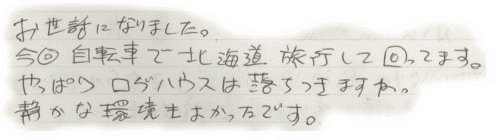 お世話になりました。
今回自転車で北海道旅行して回ってます。
やっぱりログハウスは落ちつきますね。
静かな環境もよかったです。